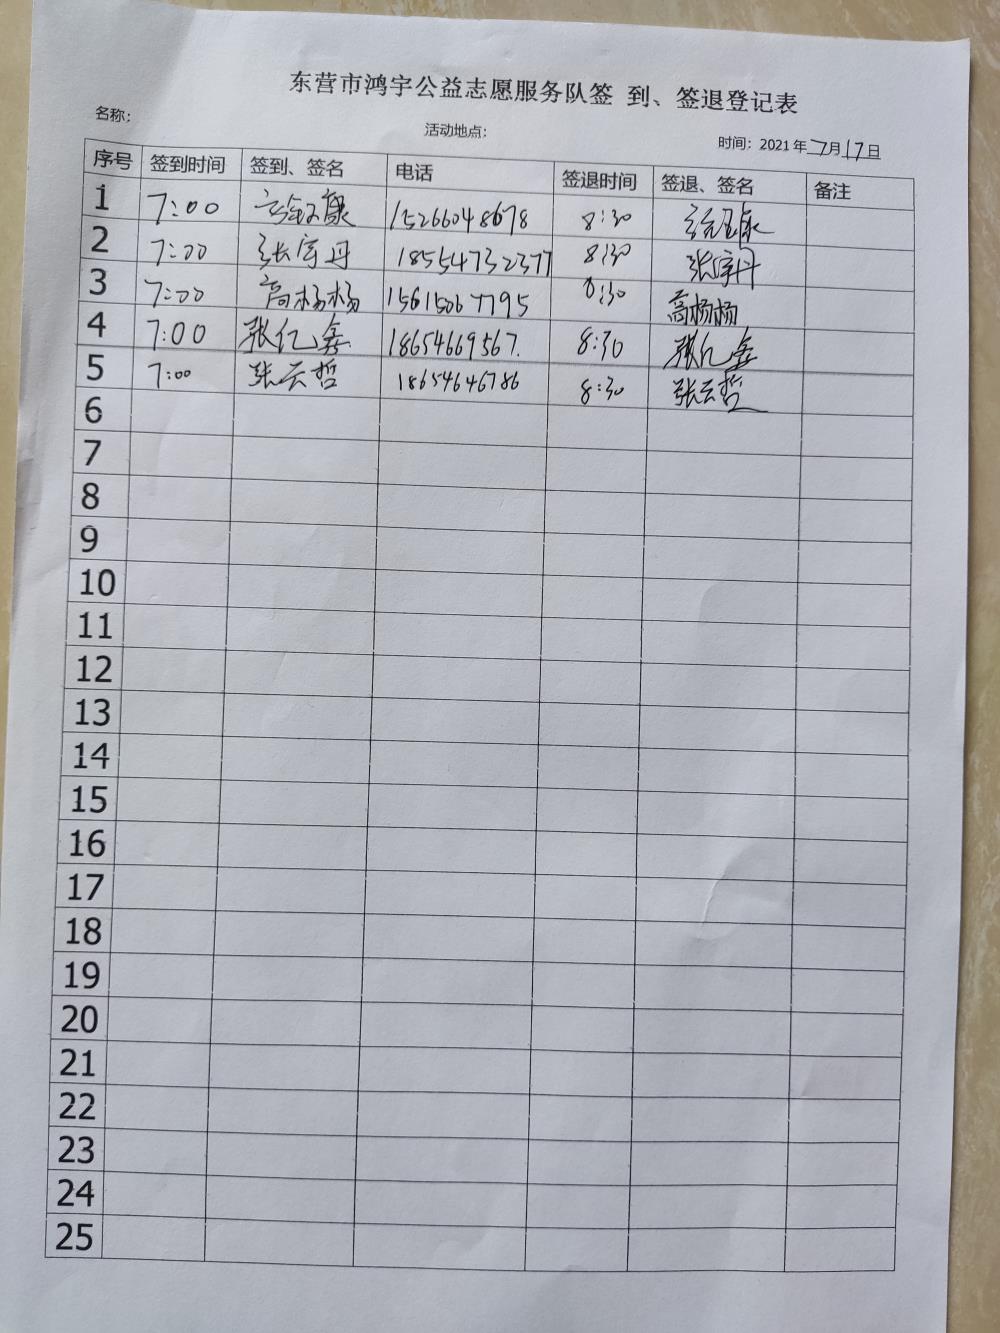 东营市鸿宇公益志愿服务队签 到、签退登记表
名称: 活动地点: 时间: 2021年7月17日
序号 签到时间 签到、签名 电话 签退时间 签退、签名 备注
1 7:00 15266048678 8:30
2 7:00 张宇丹 18554732377 8:30 张宇丹
3 7:00 高杨杨 15615067795 8:30 高杨杨
4 7:00 张亿鑫 18654669567. 8:30 张亿鑫
5 7:00 张云哲 18654646786 8:30 张云哲
6
7
8
9
10
11
12
13
14
15
16
17
18
19
20
21
22
23
24
25